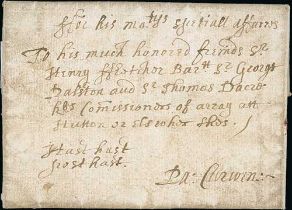 ffor his ma:tys espetiall affaires
To his much honored friends Sr.
Henry ffletcher Barrtt Sr George
Dalston and Sr Thomas Dacre
kts Comissioners of array att
Hutton or elsewher these.
Hast hast
post hast.
Pa: Curwen: